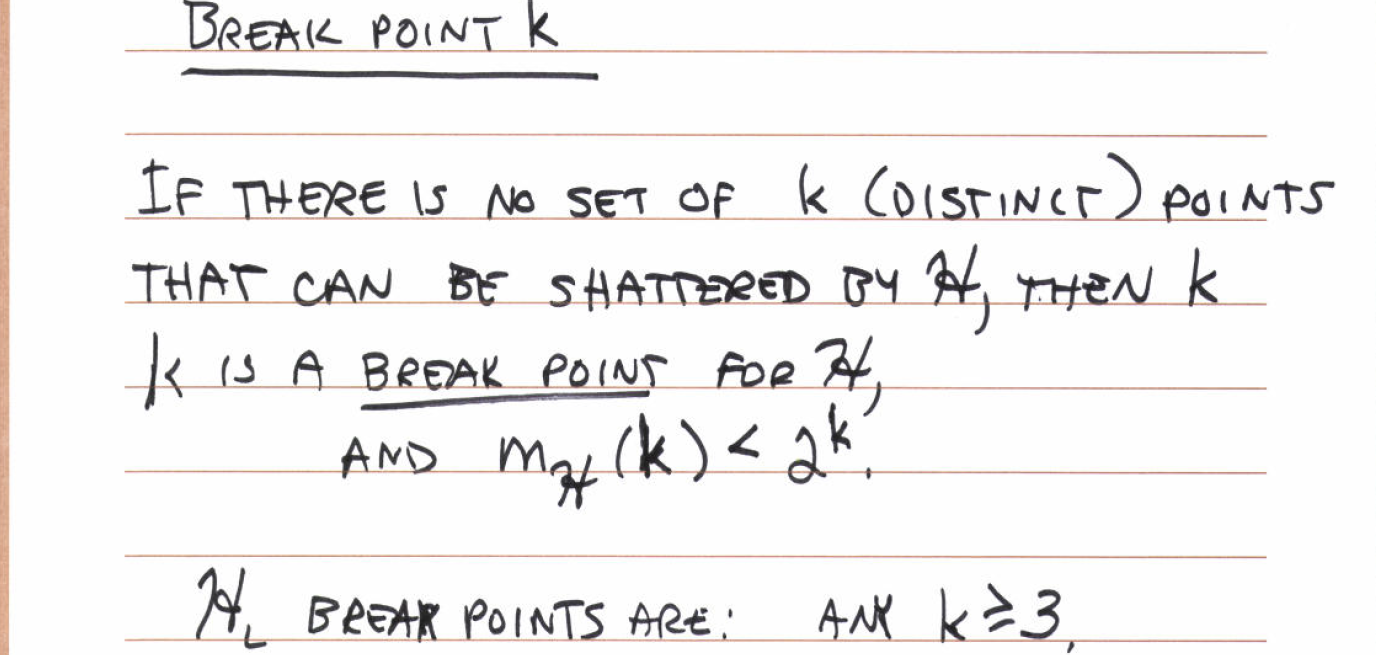 BREAK POINT k
IF THERE IS NO SET OF k (DISTINCT) POINTS
THAT CAN BE SHATTERED BY ℋ, THEN k
k IS A BREAK POINT FOR ℋ,
AND m_ℋ(k) < 2^k.
ℋ_L BREAK POINTS ARE: ANY k ≥ 3.